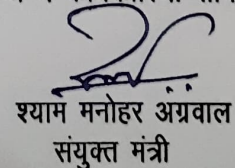 श्याम मनोहर अग्रवाल
संयुक्त मंत्री